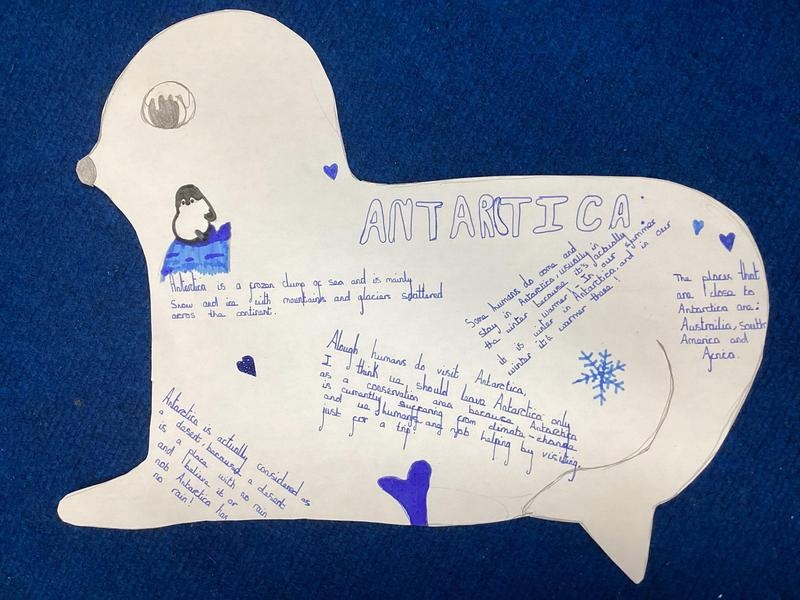 ANTARTICA
Antartica is a frozen clump of sea and is mainly
Snow and ice with mountains and glaciers spattered
acros the continant.
Some humans do come and
stay in Antartica, usually in
the winter because it's actually
warmer!- In our summer
it is winter in Antartica, and in our
winter it's warmer there!
The places that
are close to
Antartica are:
Austrailia, south
Amarica and
Africa.
Alough humans do visit Antartica,
I think we should leave Antartica only
as a conservation area because Antartica
is currantly suffering from climate-change
and we humans are not helping by visiting,
just for a trip!
Antartica is actually considered as
a desert, because a desert
is a place with no rain
and believe it or
not Antartica has
no rain!